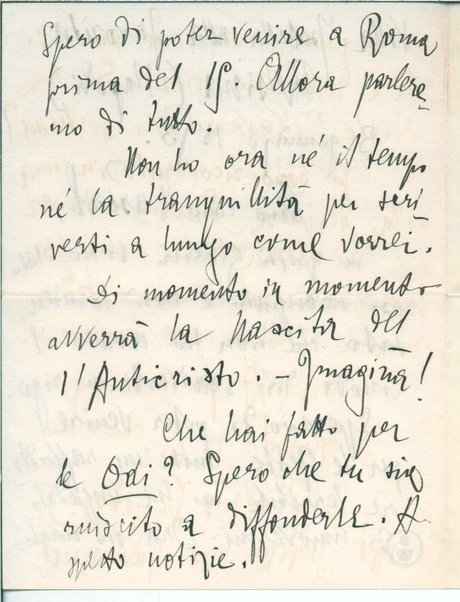 Spero di poter venire a Roma
prima del 15. Allora parlere-
mo di tutto.
Non ho ora nè il tempo
né la tranquillità per scri
verti a lungo come vorrei.
Di momento in momento
avverrà la Nascita del
l'Anticristo. – Imagina!
Che hai fatto per
le Odi? Spero che tu sia
riuscito a diffonderle. A
spetto notizie.